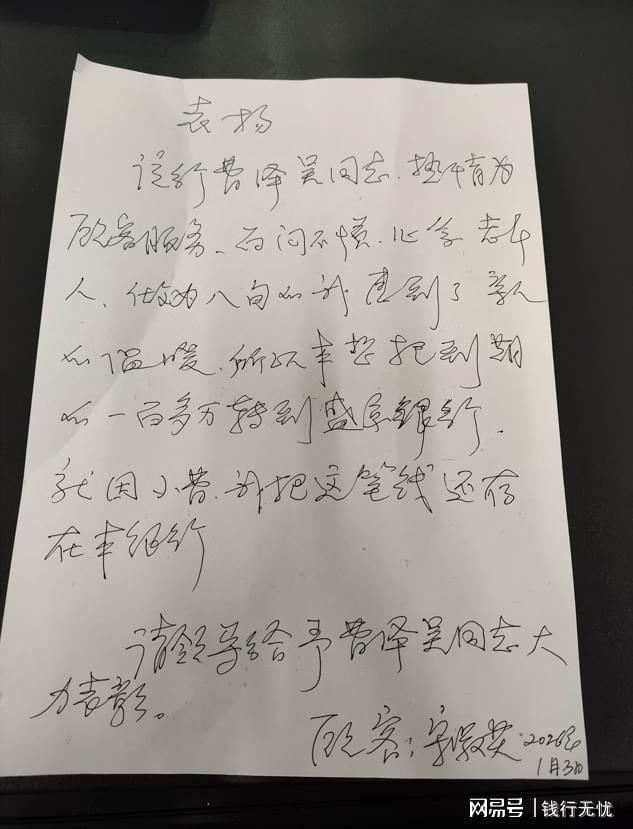 表扬
该行曹泽昊同志.热情为
顾客服务、百问不慌.心学老年
人、做为八旬的我 感到了亲人
的温暖.所以本想把到期
的一百多万转到盛京银行.
就因小曹.我把这笔钱还存
在本银行
请领导给予曹泽昊同志大
力表彰。
顾客:宋 2026年
1月3日
网易号 | 钱行无忧